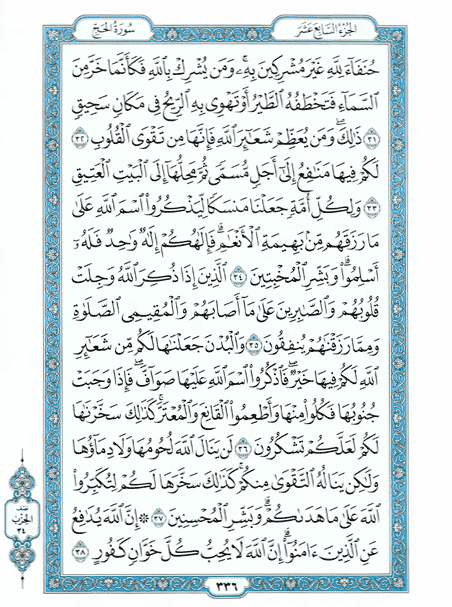 سُورَةُ الحَجِّ
الجُزْءُ السَّابِعَ عَشَرَ
حُنَفَآءَ لِلَّهِ غَيْرَ مُشْرِكِينَ بِهِۦۚ وَمَن يُشْرِكْ بِٱللَّهِ فَكَأَنَّمَا خَرَّ مِنَ
ٱلسَّمَآءِ فَتَخْطَفُهُ ٱلطَّيْرُ أَوْ تَهْوِى بِهِ ٱلرِّيحُ فِى مَكَانٍ سَحِيقٍ
٣١ ذَٰلِكَۖ وَمَن يُعَظِّمْ شَعَـٰٓئِرَ ٱللَّهِ فَإِنَّهَا مِن تَقْوَى ٱلْقُلُوبِ ٣٢
لَكُمْ فِيهَا مَنَـٰفِعُ إِلَىٰٓ أَجَلٍ مُّسَمًّى ثُمَّ مَحِلُّهَآ إِلَى ٱلْبَيْتِ ٱلْعَتِيقِ
٣٣ وَلِكُلِّ أُمَّةٍ جَعَلْنَا مَنسَكًا لِّيَذْكُرُوا۟ ٱسْمَ ٱللَّهِ عَلَىٰ
مَا رَزَقَهُم مِّنۢ بَهِيمَةِ ٱلْأَنْعَـٰمِۗ فَإِلَـٰهُكُمْ إِلَـٰهٌ وَٰحِدٌ فَلَهُۥٓ
أَسْلِمُوا۟ۗ وَبَشِّرِ ٱلْمُخْبِتِينَ ٣٤ ٱلَّذِينَ إِذَا ذُكِرَ ٱللَّهُ وَجِلَتْ
قُلُوبُهُمْ وَٱلصَّـٰبِرِينَ عَلَىٰ مَآ أَصَابَهُمْ وَٱلْمُقِيمِى ٱلصَّلَوٰةِ
وَمِمَّا رَزَقْنَـٰهُمْ يُنفِقُونَ ٣٥ وَٱلْبُدْنَ جَعَلْنَـٰهَا لَكُم مِّن شَعَـٰٓئِرِ
ٱللَّهِ لَكُمْ فِيهَا خَيْرٌۖ فَٱذْكُرُوا۟ ٱسْمَ ٱللَّهِ عَلَيْهَا صَوَآفَّۖ فَإِذَا وَجَبَتْ
جُنُوبُهَا فَكُلُوا۟ مِنْهَا وَأَطْعِمُوا۟ ٱلْقَانِعَ وَٱلْمُعْتَرَّۚ كَذَٰلِكَ سَخَّرْنَـٰهَا
لَكُمْ لَعَلَّكُمْ تَشْكُرُونَ ٣٦ لَن يَنَالَ ٱللَّهَ لُحُومُهَا وَلَا دِمَآؤُهَا
وَلَـٰكِن يَنَالُهُ ٱلتَّقْوَىٰ مِنكُمْۚ كَذَٰلِكَ سَخَّرَهَا لَكُمْ لِتُكَبِّرُوا۟
ٱللَّهَ عَلَىٰ مَا هَدَىٰكُمْۗ وَبَشِّرِ ٱلْمُحْسِنِينَ ٣٧ ۞ إِنَّ ٱللَّهَ يُدَٰفِعُ
عَنِ ٱلَّذِينَ ءَامَنُوٓا۟ۗ إِنَّ ٱللَّهَ لَا يُحِبُّ كُلَّ خَوَّانٍ كَفُورٍ ٣٨
نصف
الحزب
٣٤
٣٣٦